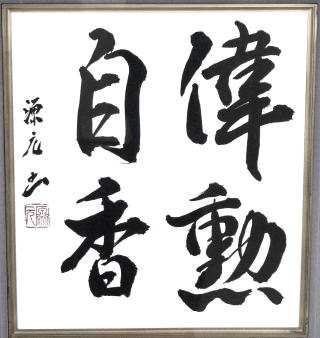 偉勲
自香
源九書